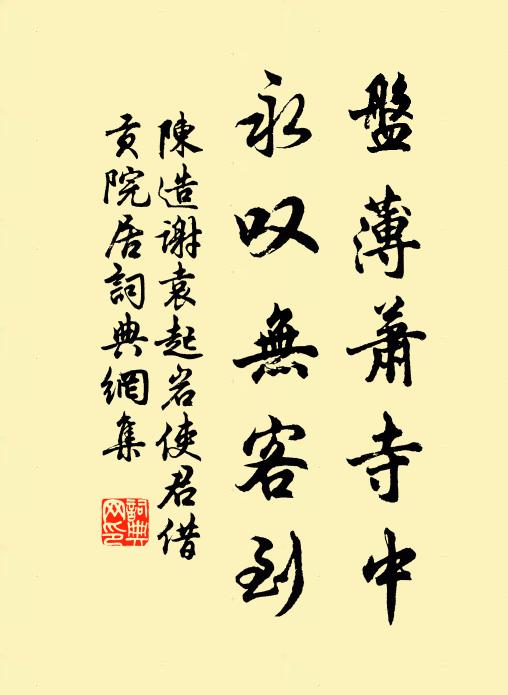 盤薄蕭寺中
永叹無客到
陳造謝袁起岩使君借
貢院居詞典網集
詞典网印